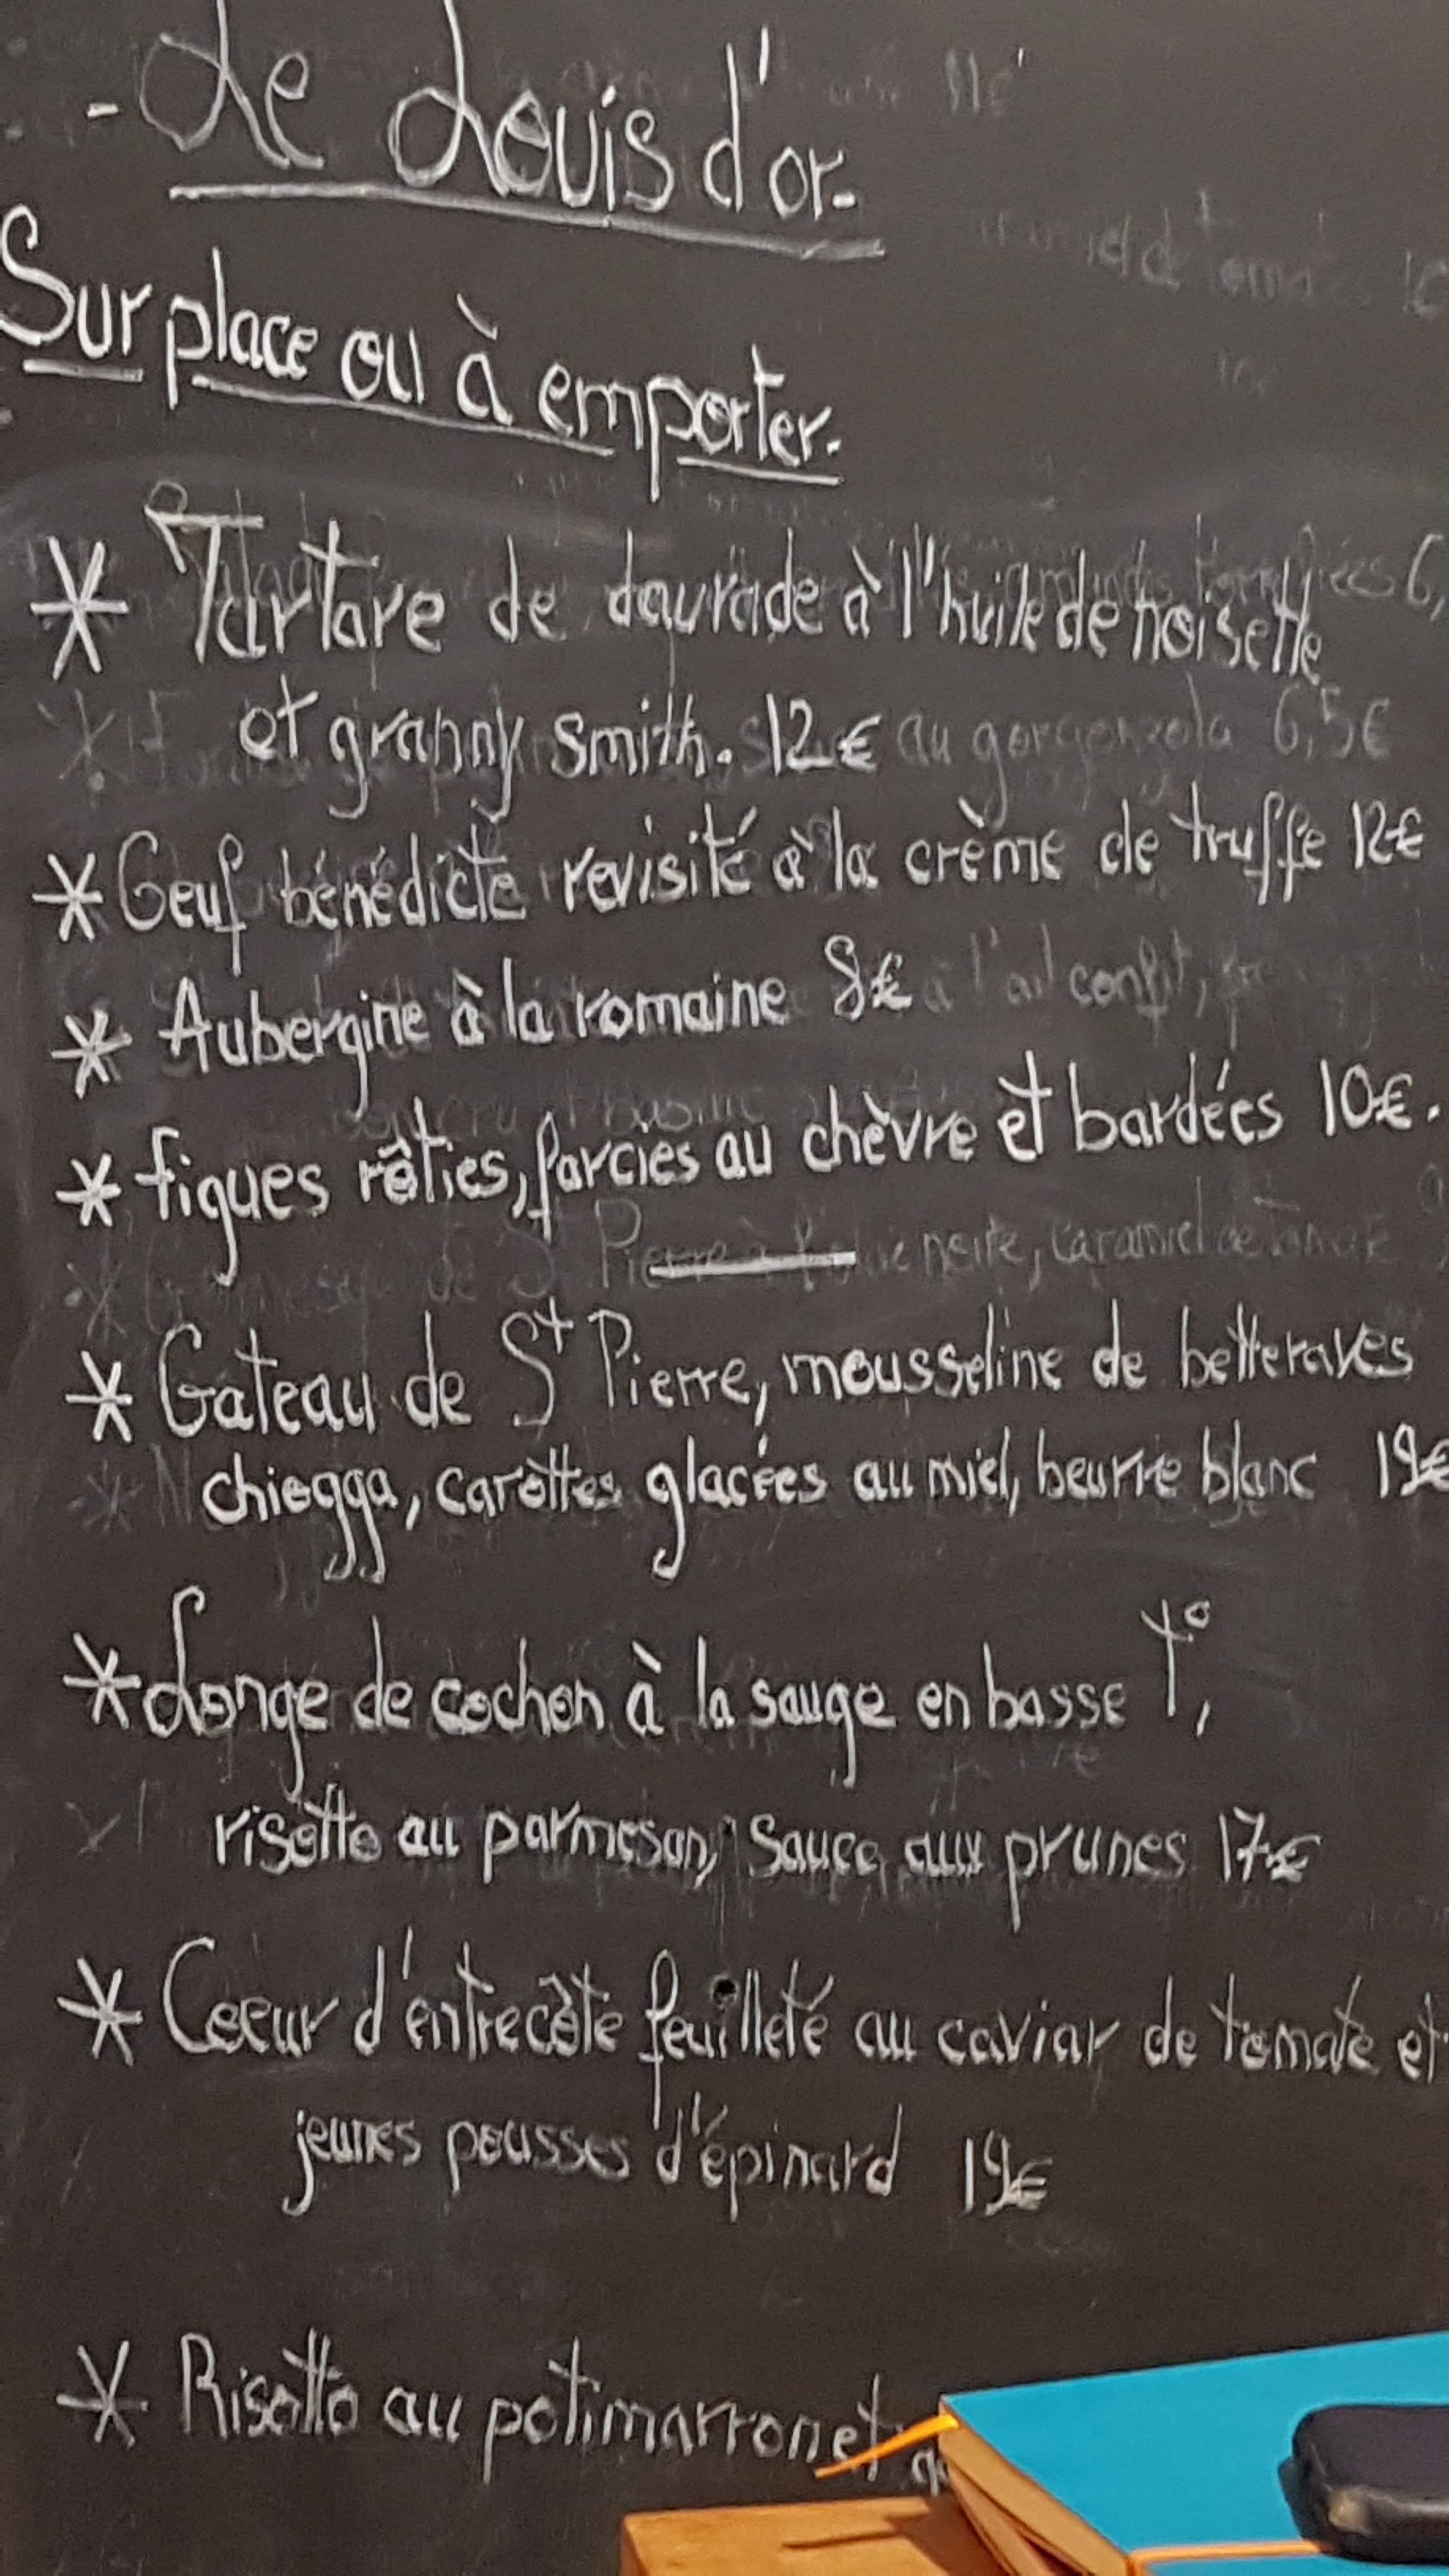 - Le Louis d'or-
Sur place ou à emporter.
* Tartare de daurade à l'huile de noisette
et granny smith. 12€
au gorgonzola 6,5€
* Oeuf bénédicte revisité à la crème de truffe 12€
* Aubergine à la romaine 8€
à l'ail confit,
* figues rôties, farcies au chèvre et bardées 10€.
de St Pierre
* Gateau de St Pierre, mousseline de betteraves
chiogga, carottes glacées au miel, beurre blanc 19€
* Longe de cochon à la sauge en basse T°,
risotto au parmesan, sauce aux prunes 17€
* Coeur d'entrecôte feuilleté au caviar de tomate et
jeunes pousses d'épinard 19€
* Risotto au potimarron et